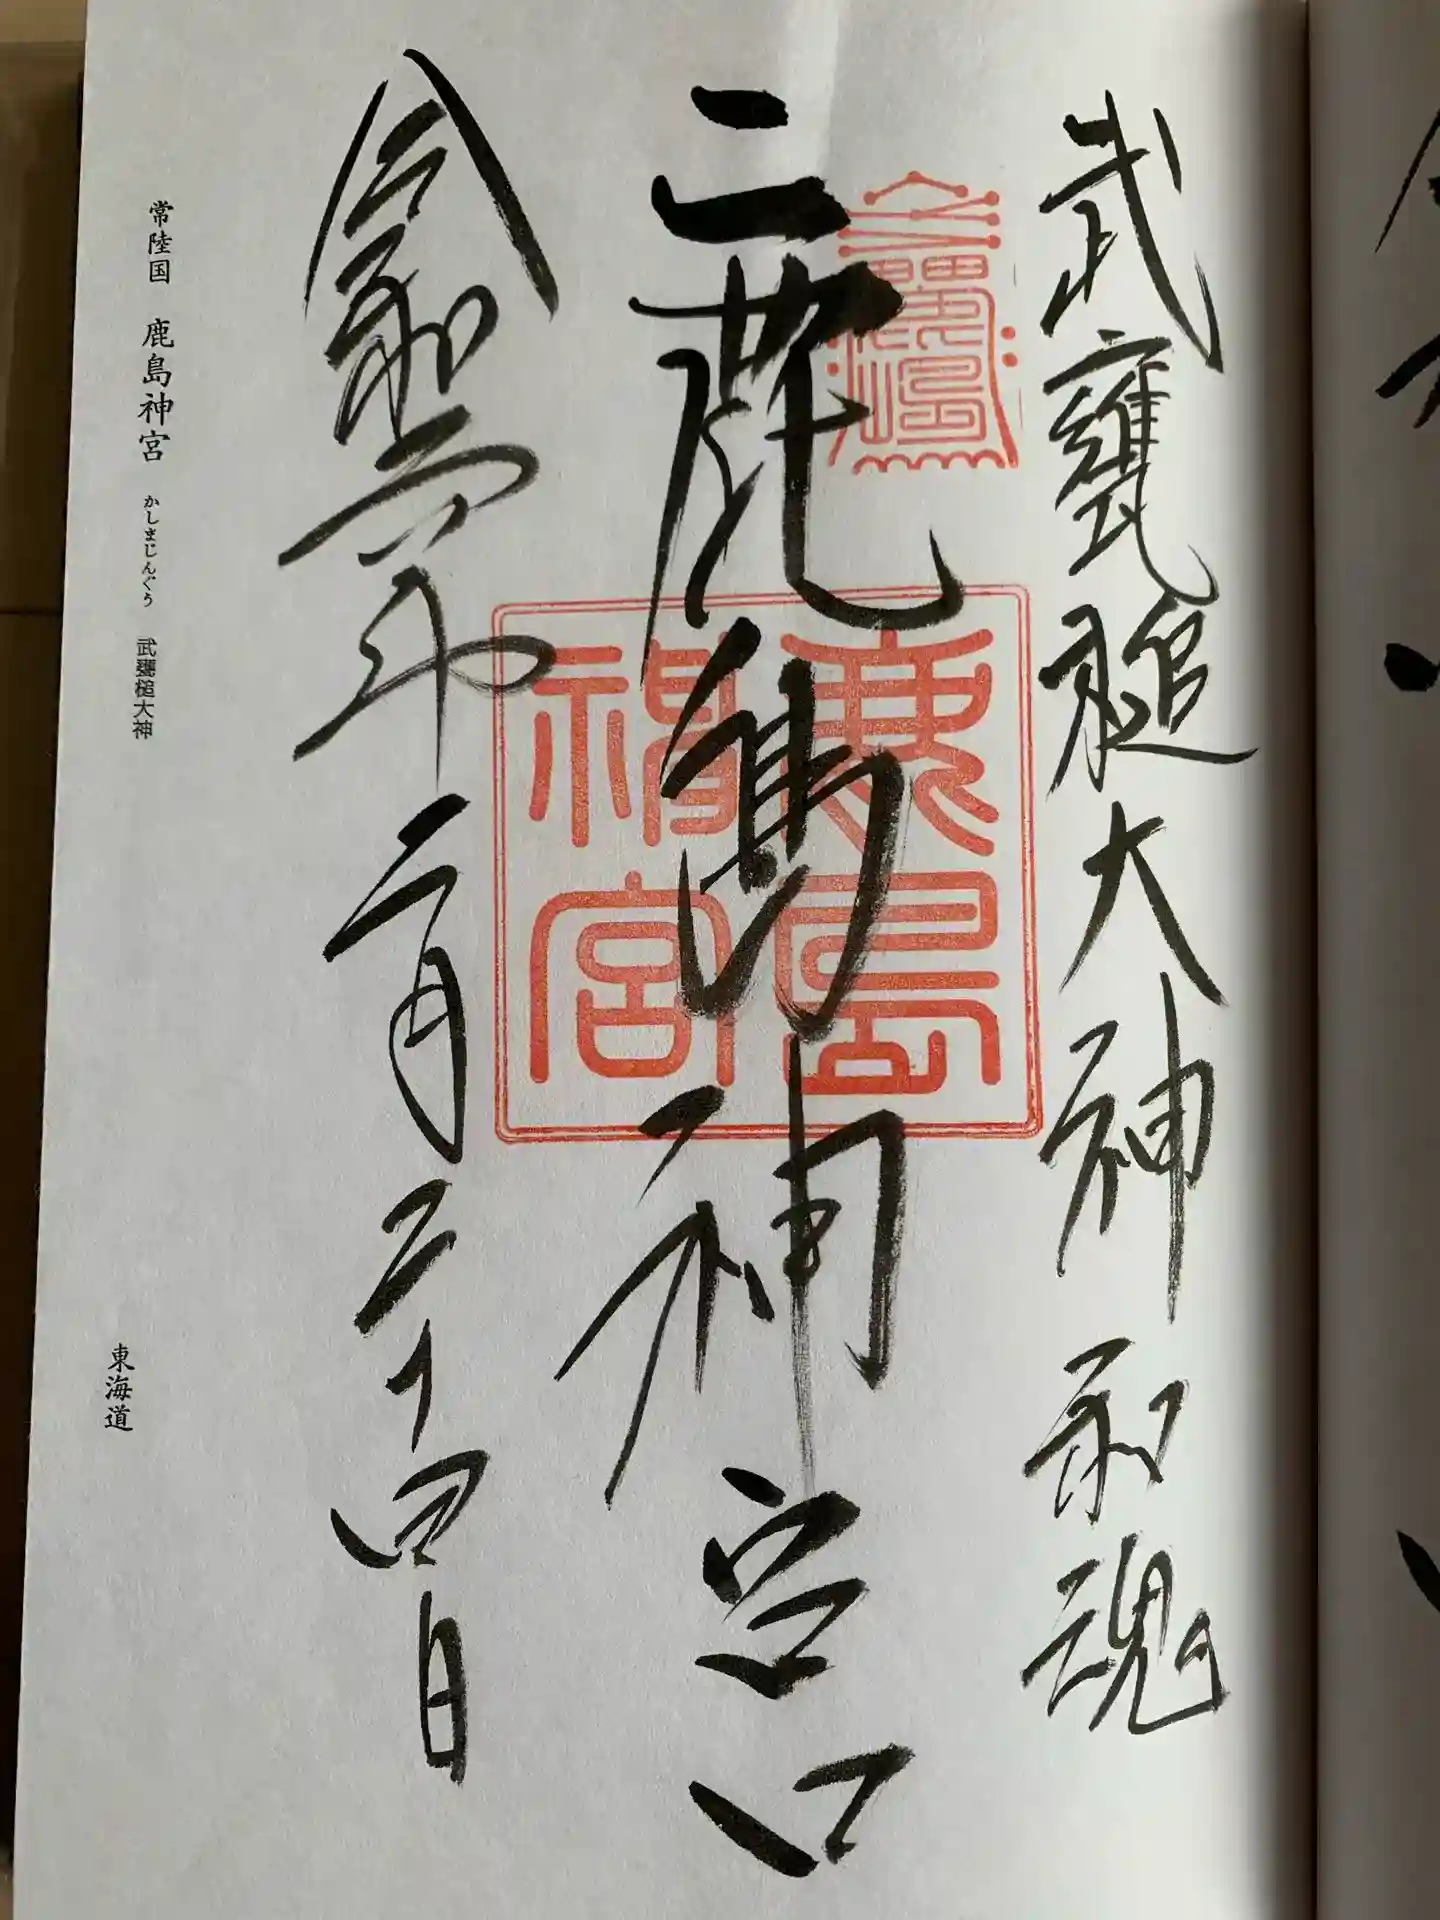 武甕槌大神和魂
鹿島神宮
鹿島神宮
令和
年二月二十四日
常陸国 鹿島神宮 かしまじんぐう 武甕槌大神
東海道